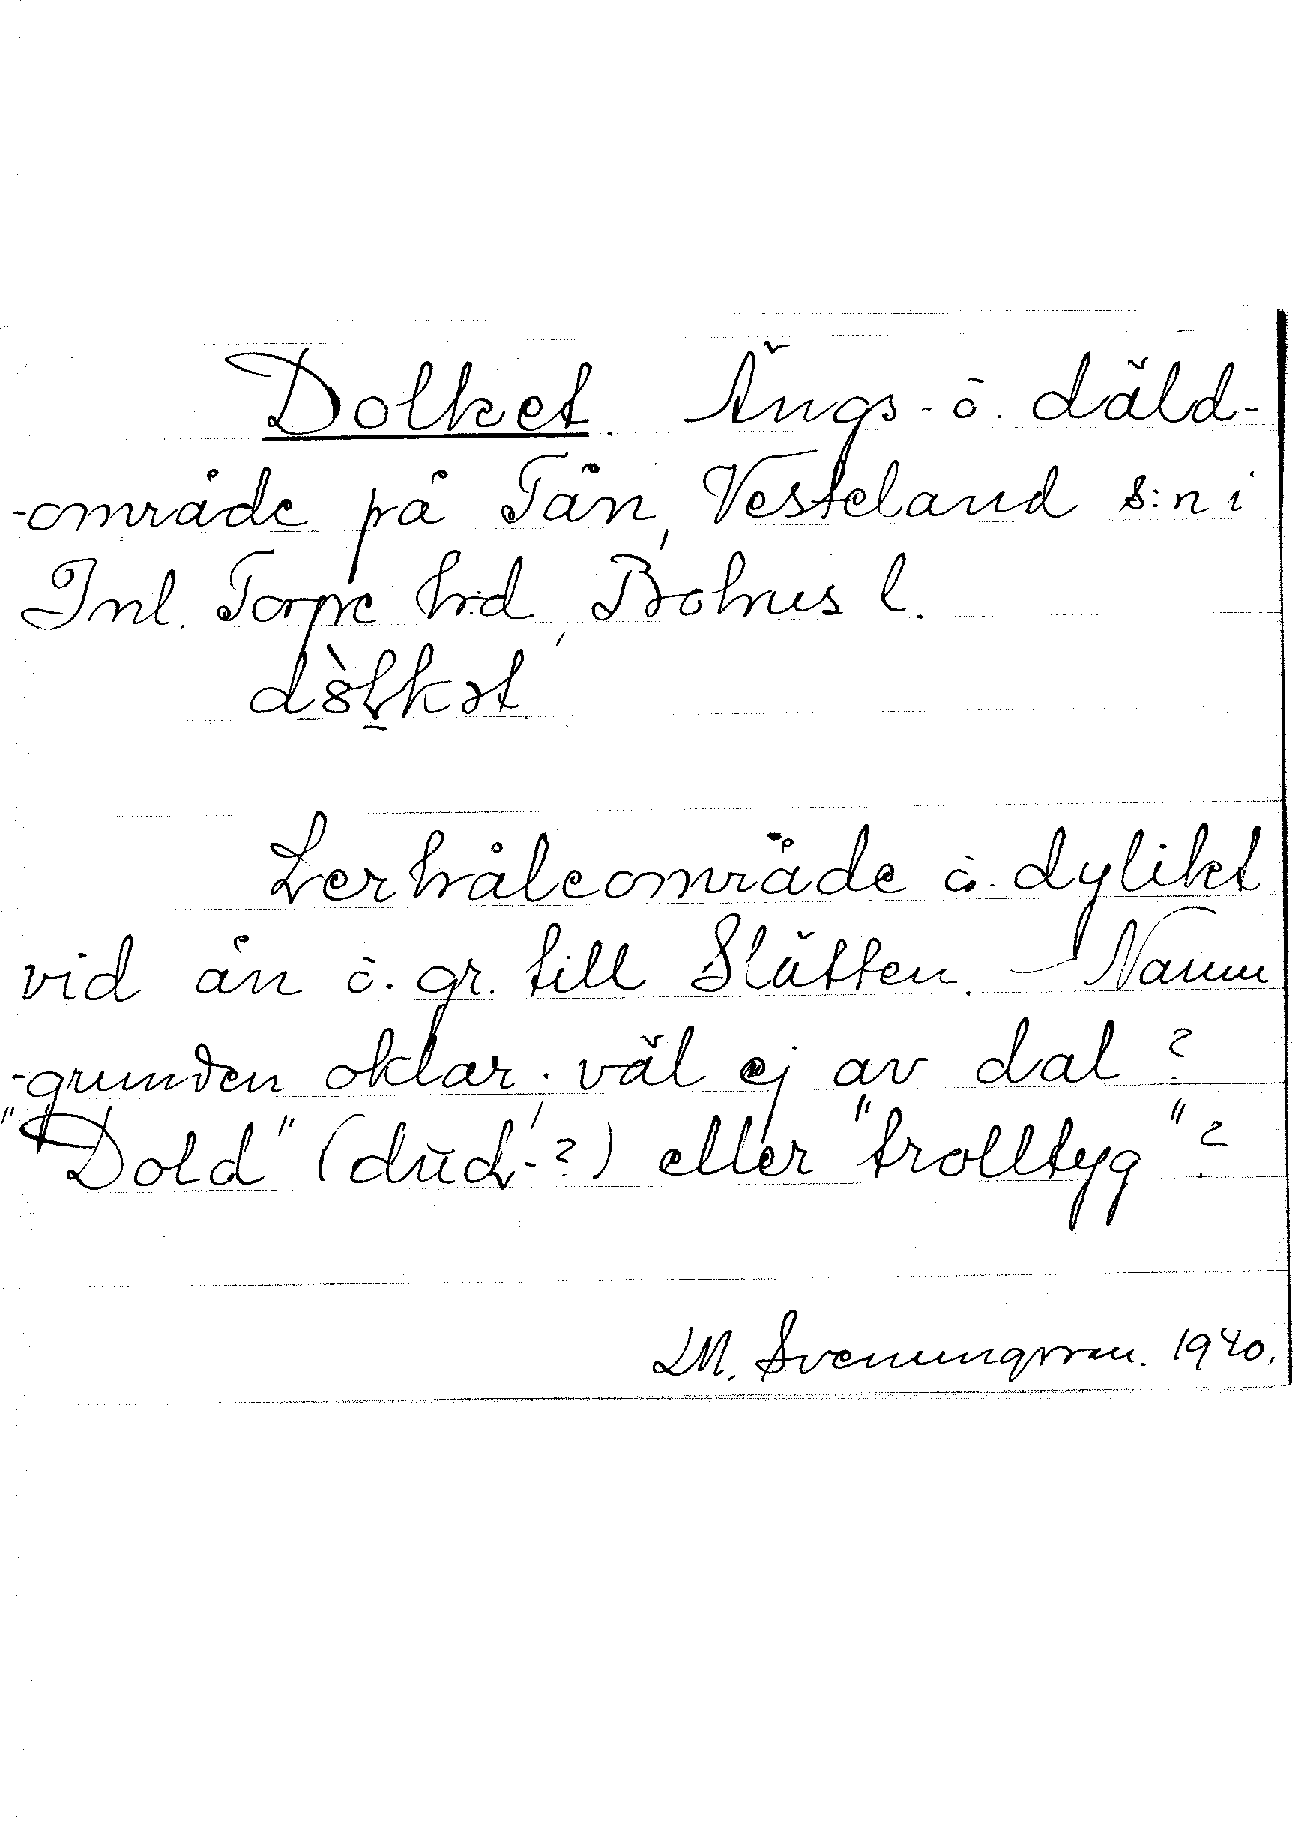 Dolket. Ängs- ö. däld-
-område på Tån, Vesteland s:n i
Inl. Torpe hrd, Bohus l.
Lerhåleområde ö. dylikt
vid ån ö. gr. till Slätten. - Namn
-grunden oklar; väl ej av dal?
"Dold" ( -?) eller "trolltyg"?
LM. Svenungsson. 1940.